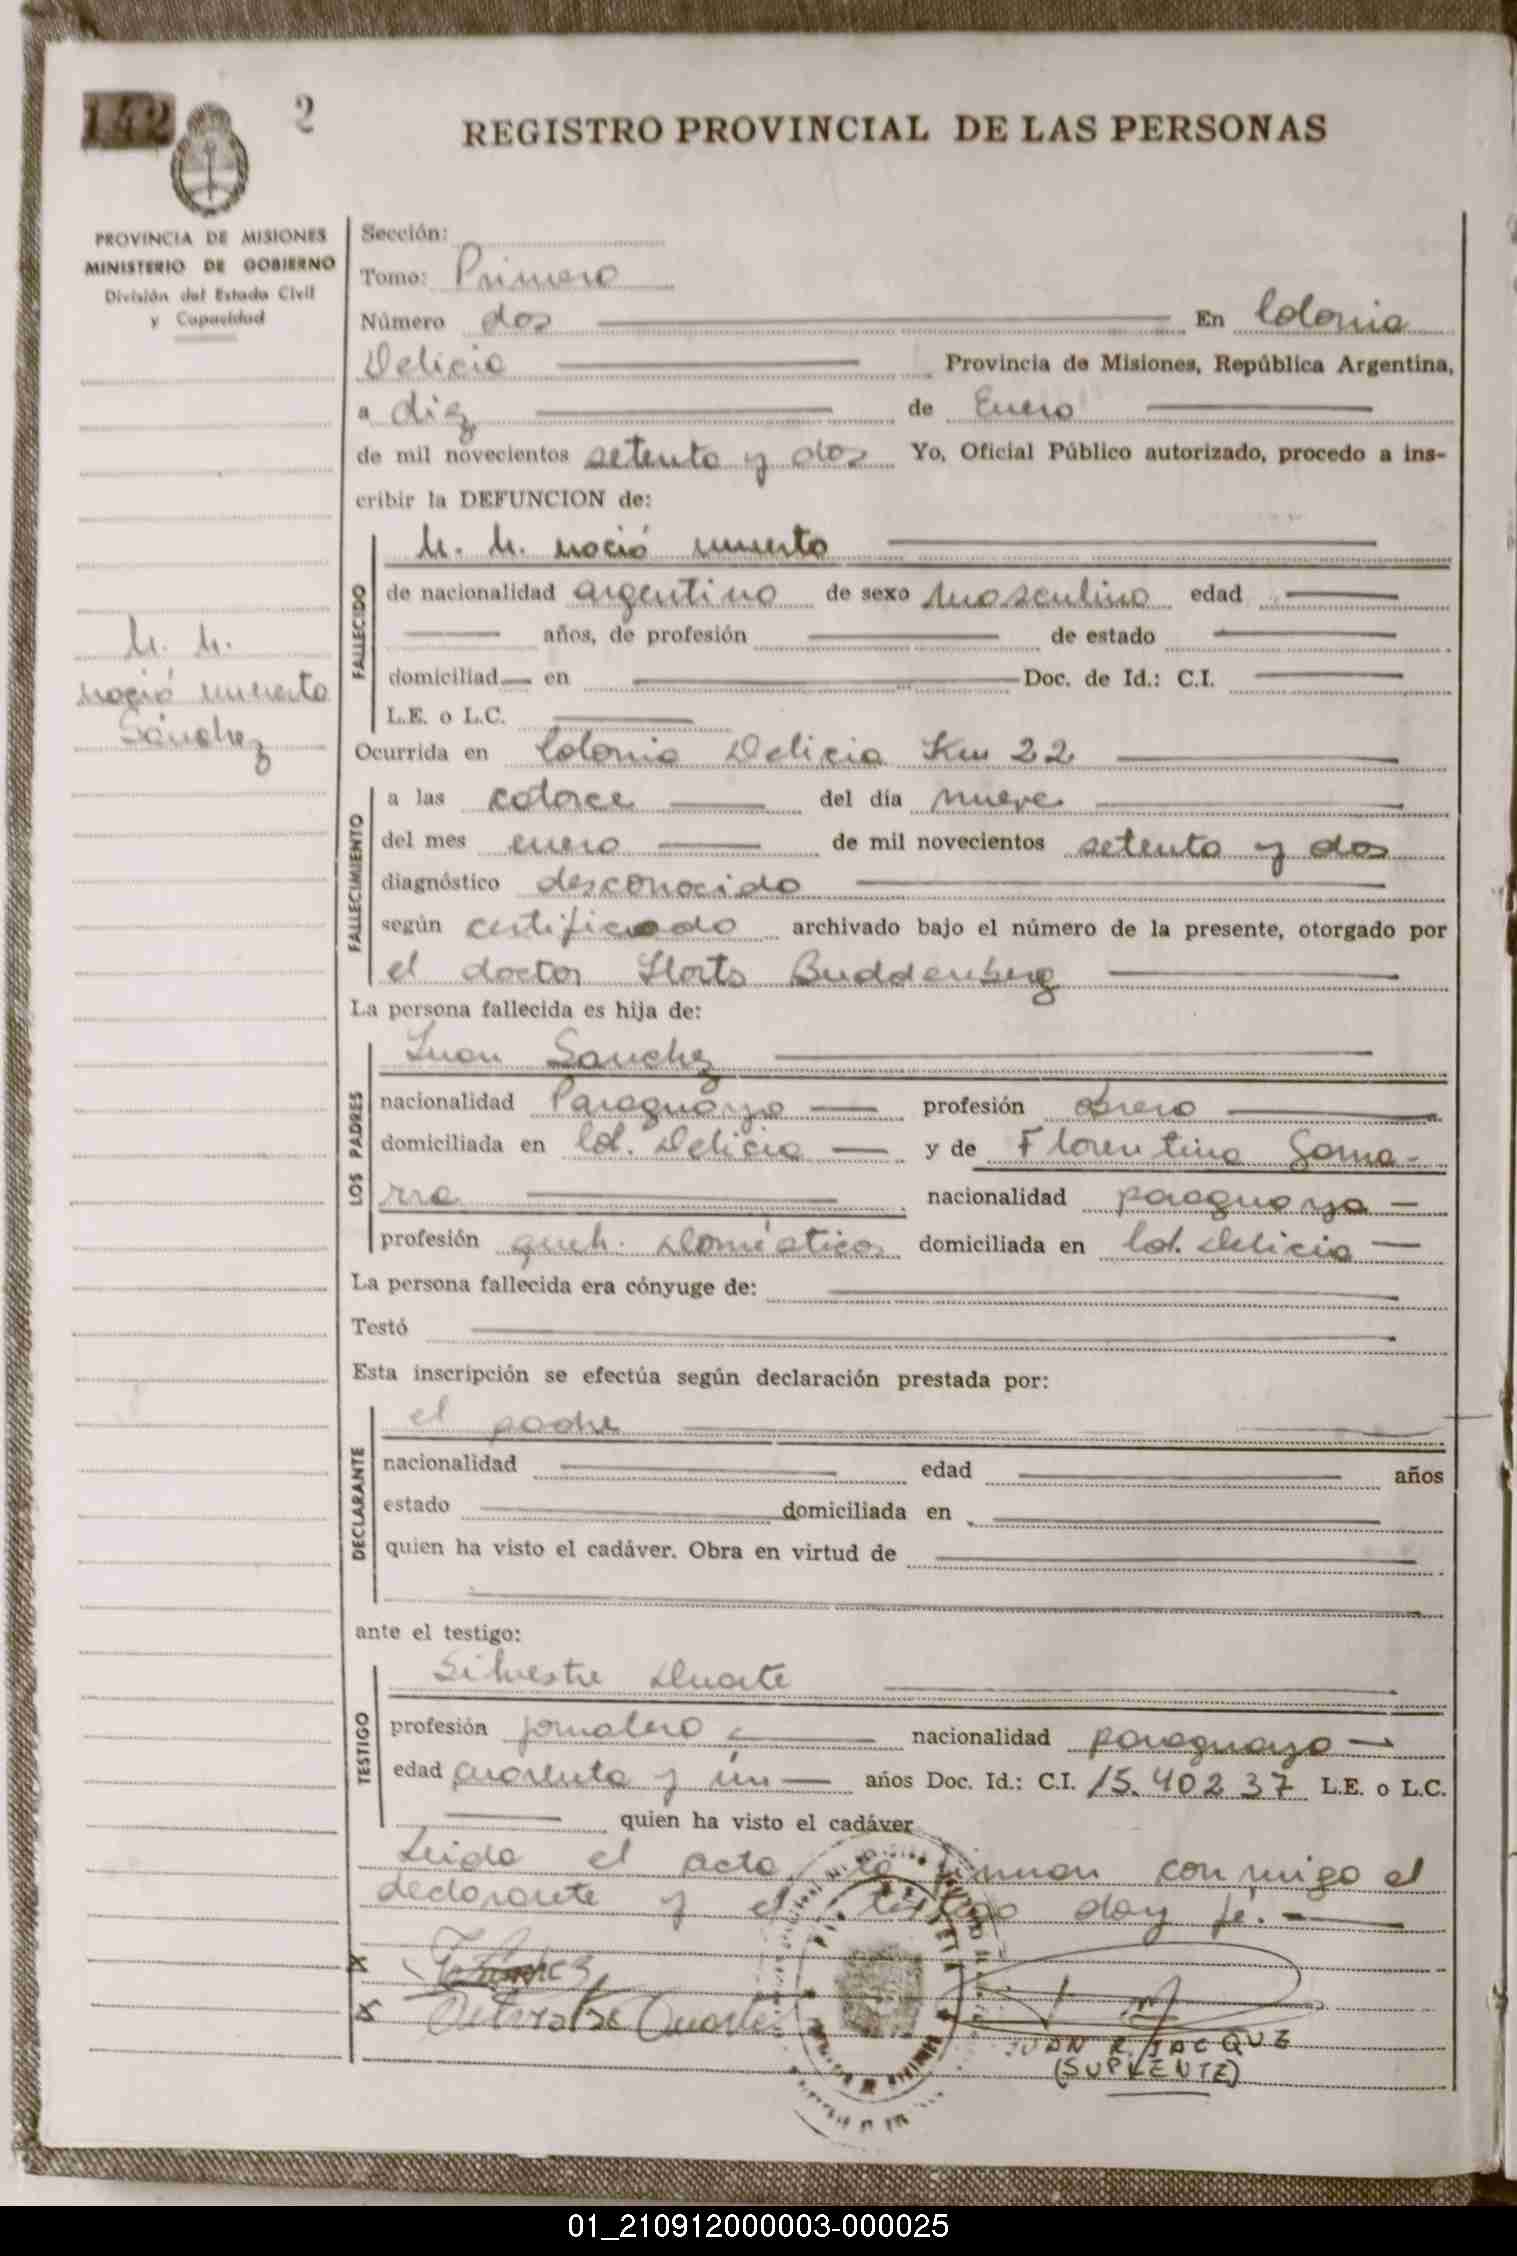 142
2
REGISTRO PROVINCIAL DE LAS PERSONAS
PROVINCIA DE MISIONES
MINISTERIO DE GOBIERNO
División del Estado Civil
y Capacidad
N. N.
nació muerto
Sánchez
Sección:
Tomo: Primero
Número dos En Colonia
Delicia Provincia de Misiones, República Argentina,
a diez de Enero
de mil novecientos setenta y dos Yo, Oficial Público autorizado, procedo a ins-
cribir la DEFUNCION de:
FALLECIDO
N. N. nació muerto
de nacionalidad argentino de sexo masculino edad
años, de profesión de estado
domiciliad en Doc. de Id.: C.I.
L.E. o L.C.
Ocurrida en Colonia Delicia Km 22
FALLECIMIENTO
a las catorce del día nueve
del mes enero de mil novecientos setenta y dos
diagnóstico desconocido
según certificado archivado bajo el número de la presente, otorgado por
el doctor Horts Buddenberg
La persona fallecida es hija de:
LOS PADRES
Juan Sanchez
nacionalidad Paraguaya profesión obrero
domiciliada en Col. Delicia y de Florentina Gama-
rra nacionalidad paraguaya
profesión queh. Domésticos domiciliada en Col. Delicia
La persona fallecida era cónyuge de:
Testó
Esta inscripción se efectúa según declaración prestada por:
DECLARANTE
el padre
nacionalidad edad años
estado domiciliada en
quien ha visto el cadáver. Obra en virtud de
ante el testigo:
TESTIGO
Silvestre Duarte
profesión jornalero nacionalidad paraguayo
edad cuarenta y ún años Doc. Id.: C.I. 15.40237 L.E. o L.C.
quien ha visto el cadáver
Leida el acta, la firman conmigo el
declarante y el testigo doy fé.
X
X Duarte
JUAN R. JACQUE
(SUPLENTE)
01_210912000003-000025